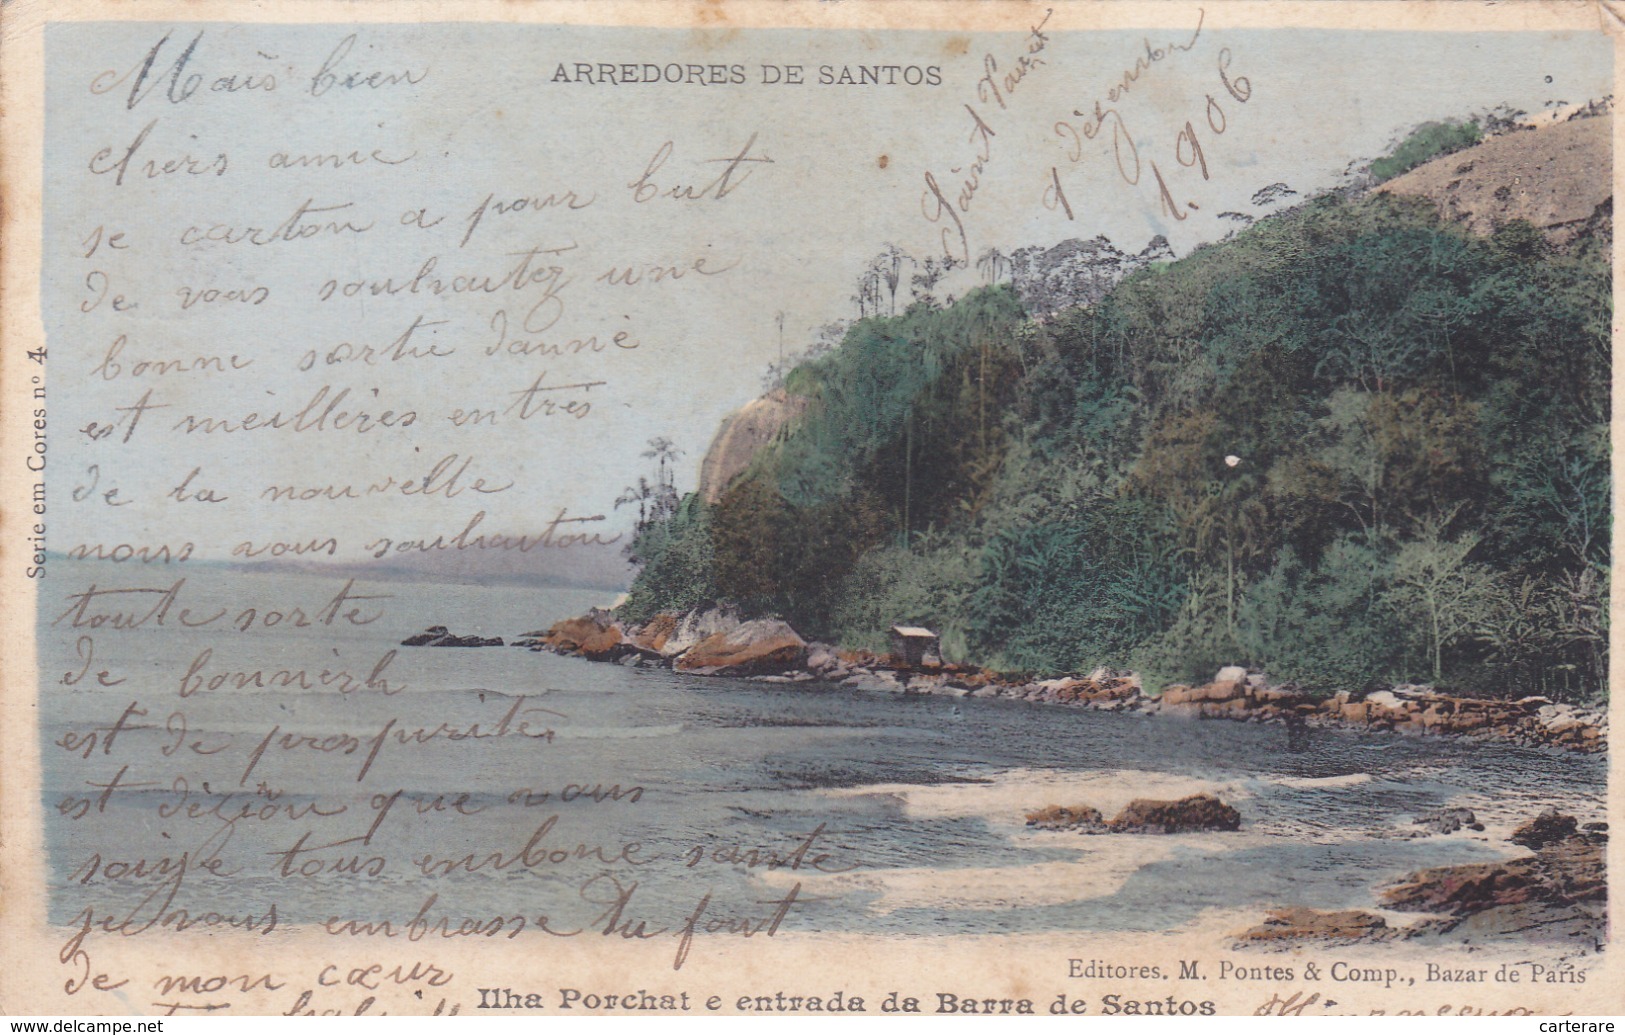 ARREDORES DE SANTOS
Saint
9 dézembre
1.906
Mais bien
chers amie
se carton a pour but
de vous souhaitéz une
bonne sortie danné
est meillères entrés
de la nouvelle
nous vous souhaiton
toute sorte
de bonnèrh
est de prospérité
est dézion que vous
soiye tous enbone sante
je vous embrasse Du font
de mon cœur
Serie em Cores nº 4
Editores. M. Pontes & Comp., Bazar de Paris
Ilha Porchat e entrada da Barra de Santos
delcampe.net
carterare